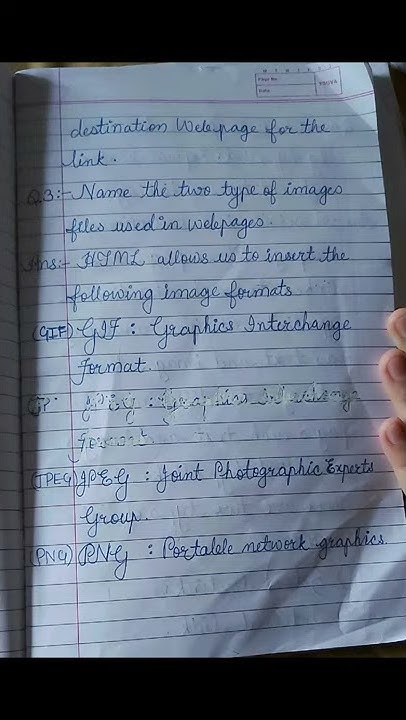 M T W T F S S
Page No.:
Date:
YOUVA
destination Webpage for the
link.
Q3:- Name the two type of images
files used in webpages.
Ans:- HTML allows us to insert the
following image formats
(GIF) GIF : Graphics Interchange
format.
JPEG : Graphics Interchange
format
(JPEG) JPEG : Joint Photographic Experts
Group.
(PNG) PNG : Portalele network graphics